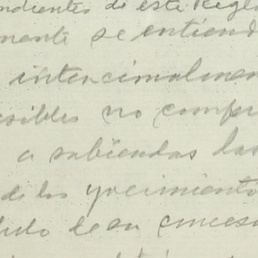 ndientes de este Regl
mente se entiend
intencionalmen
sibles no compr
a sabiendas las
de los yacimiento
dulo de su concesi